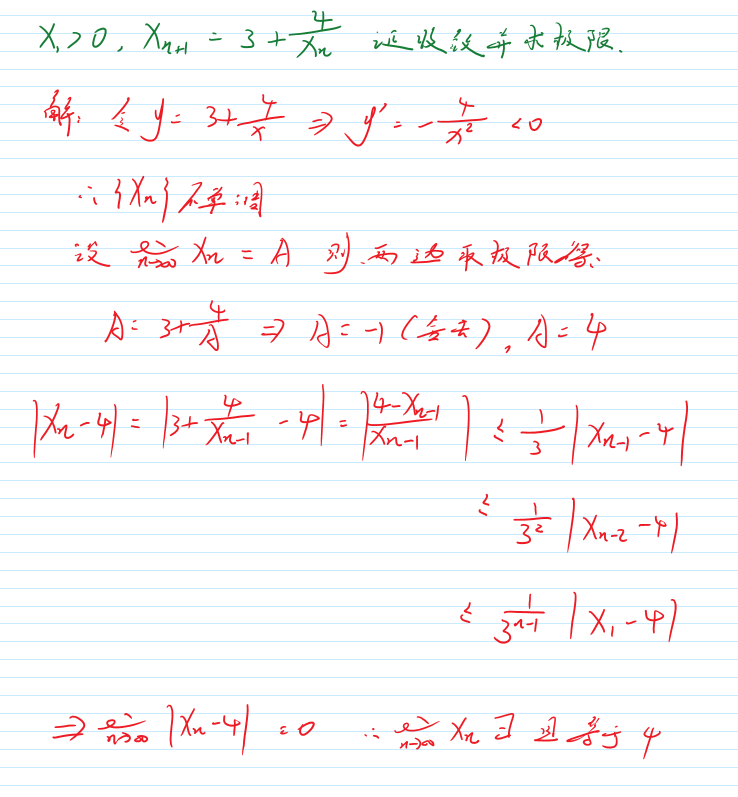 X₁>0, Xₙ₊₁ = 3 + 4/Xₙ 证收敛并求极限.
解: 令 y = 3+4/x ⇒ y' = -4/x² <0
∴ {Xₙ} 不单调
设 lim n→∞ Xₙ = A 则 两边取极限得.
A = 3+4/A ⇒ A = -1 (舍去), A = 4
|Xₙ-4| = |3+4/Xₙ₋₁ -4| = |(4-Xₙ₋₁)/Xₙ₋₁| ≤ 1/3 |Xₙ₋₁-4|
≤ 1/3² |Xₙ₋₂-4|
≤ 1/3ⁿ⁻¹ |X₁-4|
⇒ lim n→∞ |Xₙ-4| = 0 ∴ lim n→∞ Xₙ ∃ 且等于 4